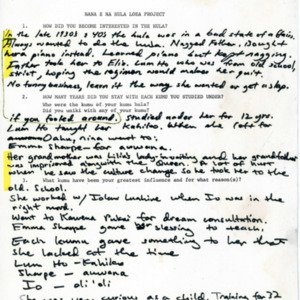 NANA I NA HULA LOEA PROJECT
1. HOW DID YOU BECOME INTERESTED IN THE HULA?
In the late 1930s & 40s the hula was in a bad state of affairs.
Always wanted to do the hula. Nagged father. Bought
her a piano instead. Learned piano but kept nagging.
Father took her to Elia. Lum Ho who was from old school,
strict, hoping the regimen would make her quit.
No funny business, learn it the way she wanted or get a slap.
2. HOW MANY YEARS DID YOU STAY WITH EACH KUMU YOU STUDIED UNDER?
Who were the kumu of your kumu hula?
Did you uniki with any of your kumu?
if you fooled around. Studied under her for 12 yrs.
Lum Ho taught her kahiko. When she left for
Oahu, nina went to
Emma Sharpe for auwana.
Her grandmother was Lili's lady in waiting and her grandfather
was imprisoned during the Queen. A lot of hurt
when she saw the culture change so she took her to the
old. School.
3. What kumu have been your greatest influence and for what reason(s)?
She worked w/ Iolani Luahine when Io was in the
right mood.
Want to Kawena Pukui for dream consultation.
Emma Sharpe gave blessing to teach.
Each kumu gave something to her that
she lacked at the time
Lum Ho - Kahiko
Sharpe - auwana
Io - oli'oli
She was very curious as a child. Training for 32